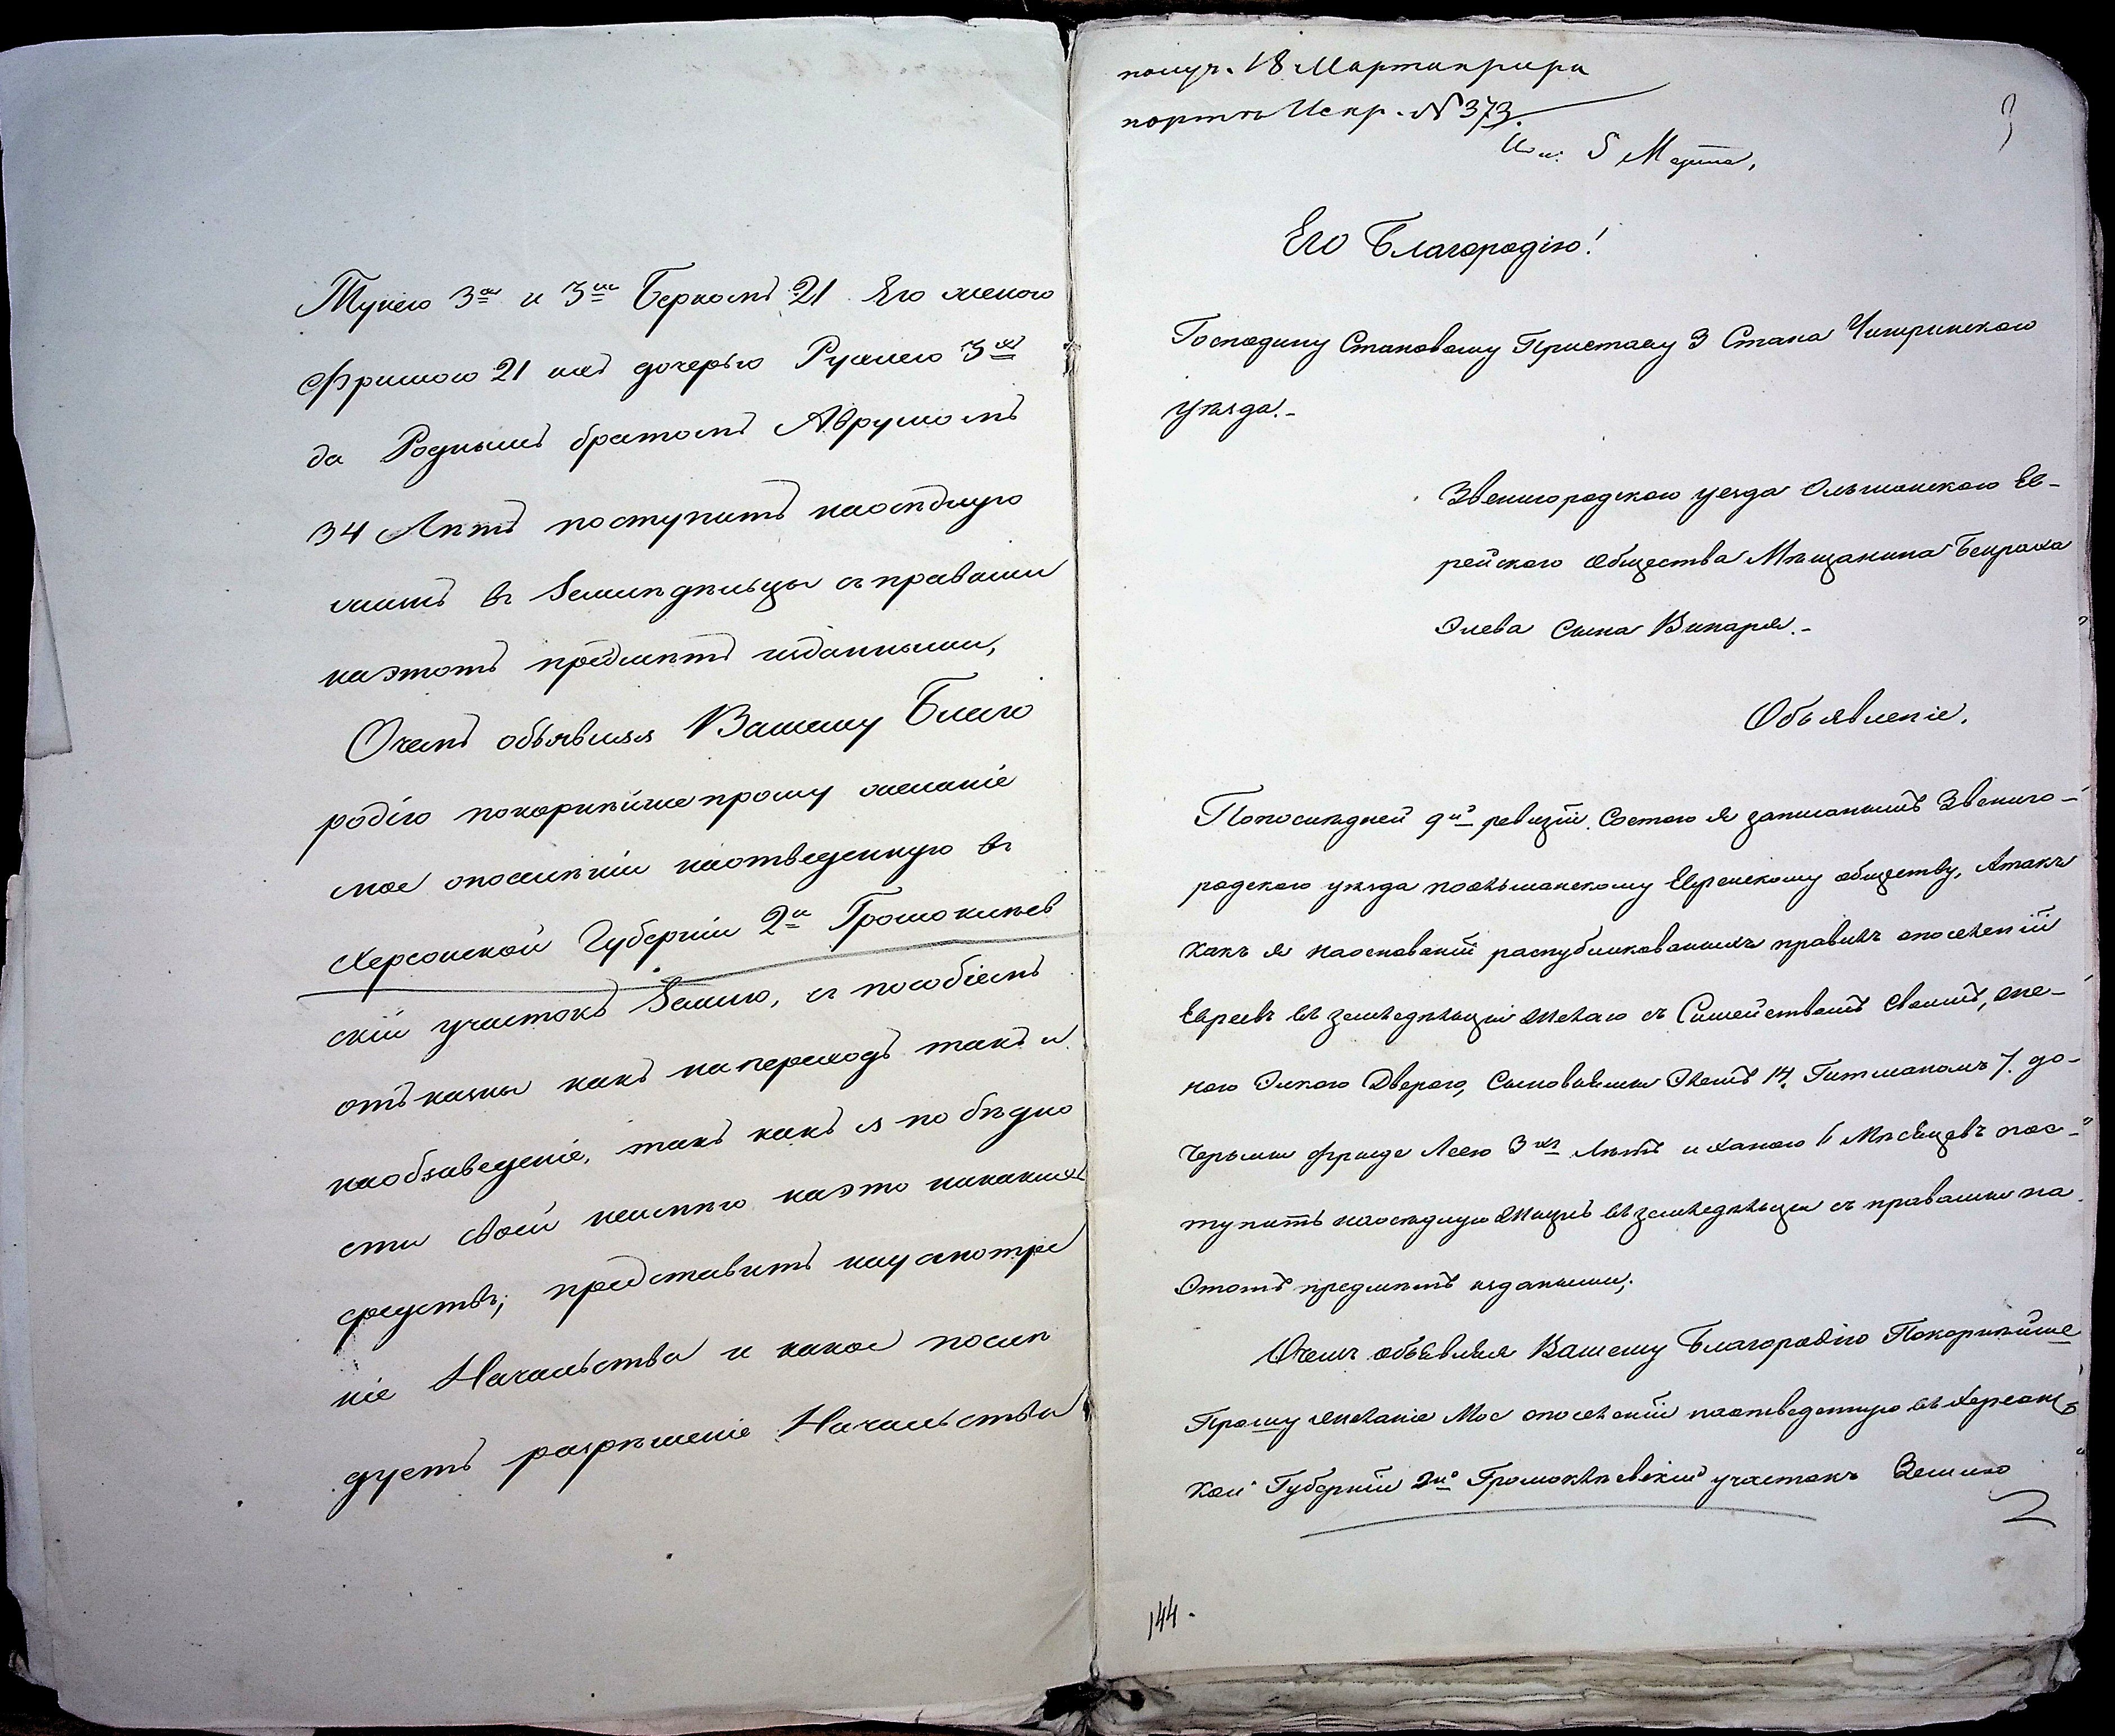 Тункею 3ᵃ и 3ᵐ Беркомъ 21 Его женою
Фримою 21 имъ дочерью Рухлею 3ᵃ
да Роднымъ братомъ Аврумомъ
34 Лѣтъ поступить наосѣдлую
жизнь въ Земледѣльцы съ правами
наэтотъ предметъ изданными,
Очемъ объявляя Вашему Благо
родію покорнѣйше прошу желаніе
мое опоселѣніи наотведенную въ
Херсонской Губерніи 2ᵃ Громоклѣев
скій участокъ Землю, съ пособіемъ
отъ казны какъ на переходъ такъ и
наобзаведеніе, такъ какъ я по бѣдно
сти своей неимѣю наэто никакихъ
средствъ; представить на усмотре
ніе Начальства и какое послѣ
дуетъ разрѣшеніе Начальства
3
получ. 18 Марта при ра
портѣ Испр. № 373.
5 Марта,
Его Благородію!
Господину Становому Приставу 3 Стана Чигринского
уѣзда.-
Звенигородского уезда Ольшанского Ев-
рейского общества Мѣщанина Бенраха
Элева Сына Винаря.-
Объявленіе.
Попослѣдней 9й ревизіи Состою я записаннымъ Звениго-
родского уѣзда поольшанскому Еврейскому обществу, Атакъ
какъ я наоснованіи распубликованныхъ правилъ опоселеніи
Евреевъ въ земледѣльціи желаю съ Симействомъ своимъ, же-
ною Элкою Дверою, Сыновьями Элемъ 14, Гитманомъ 7. до-
черьми Фрейде Леею 3хъ Лѣтъ и Ханою 6 Мѣсяцевъ пос-
тупить наосѣдлую жизнь въ земледѣльци съ правами на
Этотъ предметъ изданными;
Очемъ объявляя Вашему Благородію Покорнѣйше
Прошу желаніе Мое опоселеніи наотведенную въ Херсонс
кой Губерніи 2й Громоклѣевскій участокъ Землю
144.